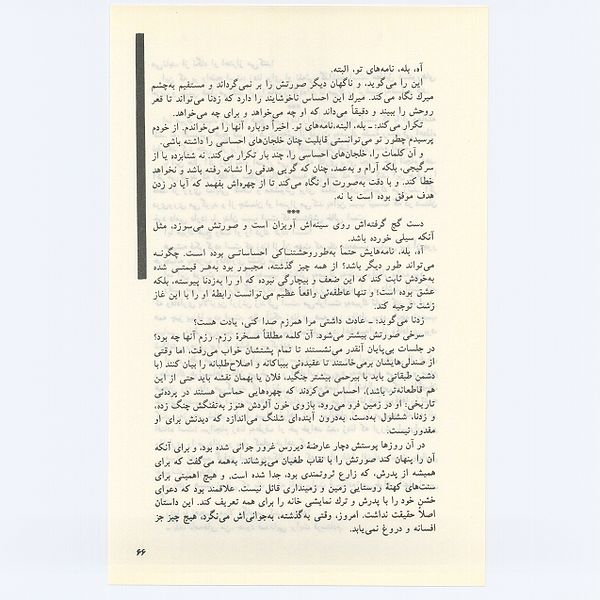 آه، بله، نامه‌های تو، البته.
این را می‌گوید، و ناگهان دیگر صورتش را بر نمی‌گرداند و مستقیم به‌چشم
میرك نگاه می‌کند. میرك این احساس ناخوشایند را دارد که زدنا می‌تواند تا قعر
روحش را ببیند و دقیقاً می‌داند که او چه می‌خواهد و برای چه می‌خواهد.
تکرار می‌کند: ـ بله، البته،نامه‌های تو. اخیراً دوباره آنها را می‌خواندم. از خودم
پرسیدم چطور تو می‌توانستی قابلیت چنان خلجان‌های احساسی را داشته باشی.
و آن کلمات را، خلجان‌های احساسی را، چند بار تکرار می‌کند. نه شتابزده یا از
سرگیجی، بلکه آرام و به‌عمد، چنان که گویی هدفی را نشانه رفته باشد و نخواهد
خطا کند. و با دقت به‌صورت او نگاه می‌کند تا از چهره‌اش بفهمد که آیا در زدن
هدف موفق بوده است یا نه.
***
دست گچ گرفته‌اش روی سینه‌اش آویزان است و صورتش می‌سوزد، مثل
آنکه سیلی خورده باشد.
آه، بله، نامه‌هایش حتماً به‌طوروحشتناکی احساساتی بوده است. چگونه
می‌تواند طور دیگر باشد؟ از همه چیز گذشته، مجبور بود به‌هر قیمتی شده
به‌خودش ثابت کند که این ضعف و بیچارگی نبوده که او را به‌زدنا پیوسته، بلکه
عشق بوده است؛ و تنها عاطفه‌ئی واقعاً عظیم می‌توانست رابطهٔ او را با این غاز
زشت توجیه کند.
زدنا می‌گوید: ـ عادت داشتی مرا همرزم صدا کنی، یادت هست؟
سرخی صورتش بیشتر می‌شود. آن کلمه مطلقاً مسخرهٔ رزم. رزم آنها چه بود؟
در جلسات بی‌پایان آنقدر می‌نشستند تا تمام پشتشان خواب می‌رفت، اما وقتی
از صندلی‌هایشان برمی‌خاستند تا عقیده‌ئی بیباکانه و اصلاح‌طلبانه را بیان کنند (با
دشمن طبقاتی باید با بیرحمی بیشتر جنگید، فلان یا بهمان نقشه باید حتی از این
هم قاطعانه‌تر باشد)، احساس می‌کردند که چهره‌هایی حماسی هستند در پرده‌ئی
تاریخی: او در زمین فرو می‌رود، بازوی خون آلودش هنوز به‌تفنگش چنگ زده،
و زدنا، ششلول به‌دست، به‌درون آینده‌ای شلنگ می‌اندازد که دیدنش برای او
مقدور نیست.
در آن روزها پوستش دچار عارضهٔ دیررس غرور جوانی شده بود، و برای آنکه
آن را پنهان کند صورتش را با نقاب طغیان می‌پوشاند. به‌همه می‌گفت که برای
همیشه از پدرش، که زارع ثروتمندی بود، جدا شده است. و هیچ اهمیتی برای
سنت‌های کهنهٔ روستایی زمین و زمینداری قائل نیست. علاقمند بود که دعوای
خشن خود را با پدرش و ترك نمایشی خانه را برای همه تعریف کند. این داستان
اصلاً حقیقت نداشت. امروز، وقتی به‌گذشته، به‌جوانی‌اش می‌نگرد، هیچ چیز جز
افسانه و دروغ نمی‌یابد.
۶۶